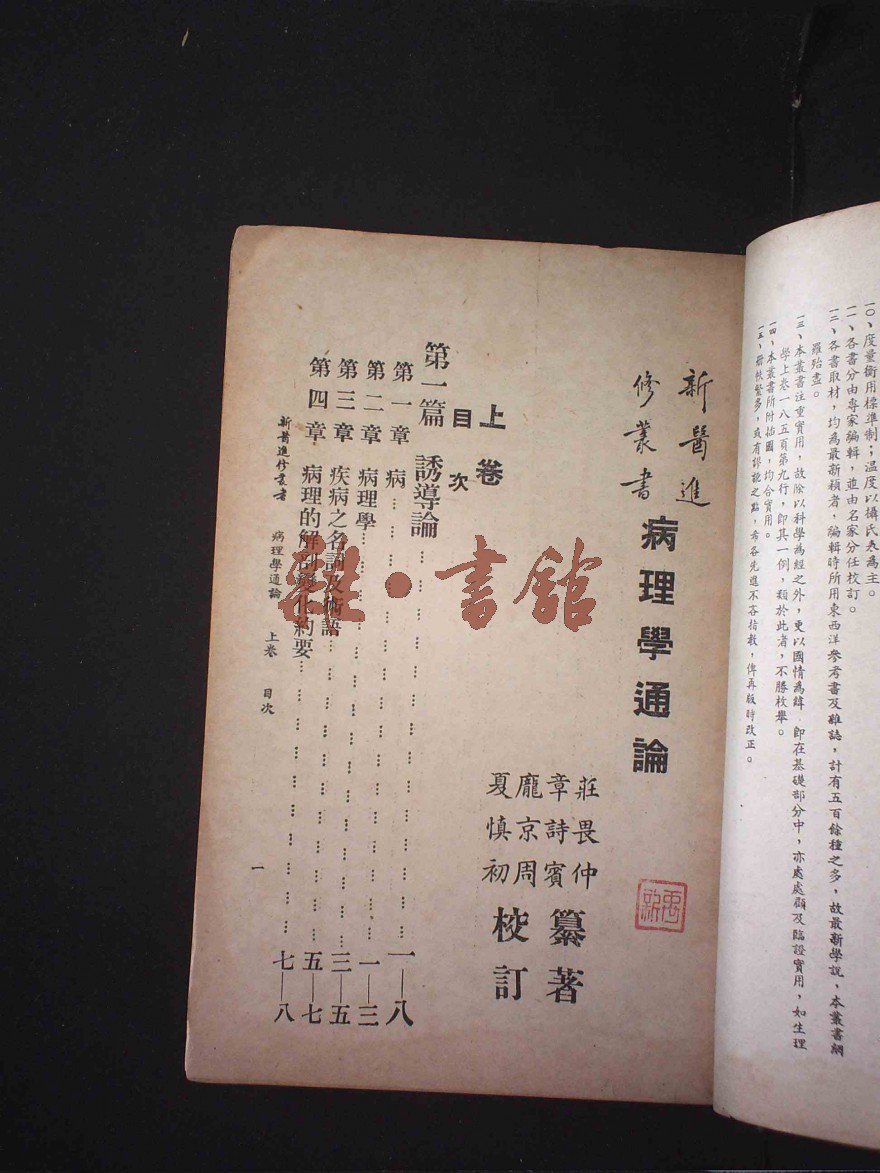 一〇、度量衡用標準制；溫度以攝氏表為主。
一一、各書分由專家編輯，並由名家分任校訂。
一二、各書取材，均為最新穎者，編輯時所用東西洋參考書及雜誌，計有五百餘種之多，故最新學說，本叢書網
羅殆盡。
一三、本叢書注重實用，故除以科學為經之外，更以國情為緯，即在基礎部分中，亦處處顧及臨證實用，如生理
學上卷一八五頁第九行，即其一例，類於此者，不勝枚舉。
一四、本叢書所附插圖，均合實用。
一五、冊帙繁多，或有謬訛之點，希各先進不吝指教，俾再版時改正。
新醫進
修叢書
病理學通論
莊畏仲
章詩賓
纂著
龐京周
夏慎初
校訂
上卷
目次
第一篇 誘導論……一—八
第一章 病……一—三
第二章 病理學……三—五
第三章 疾病之名詞及術語……五—七
第四章 病理的解剖變化約要……七—八
新醫進修叢書 病理學通論 上卷 目次 一
書館